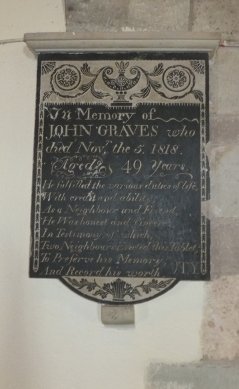 In Memory of
JOHN GRAVES who
died Nov.r the 5, 1818.
Aged 49 Years
He fulfilled the various duties of life
With credit and ability
As a Neighbour and Friend
He Was honest and Sincere
In Testimony of which
Two Neighbours Erected this Tablet
To Preserve his Memory
And Record his worth